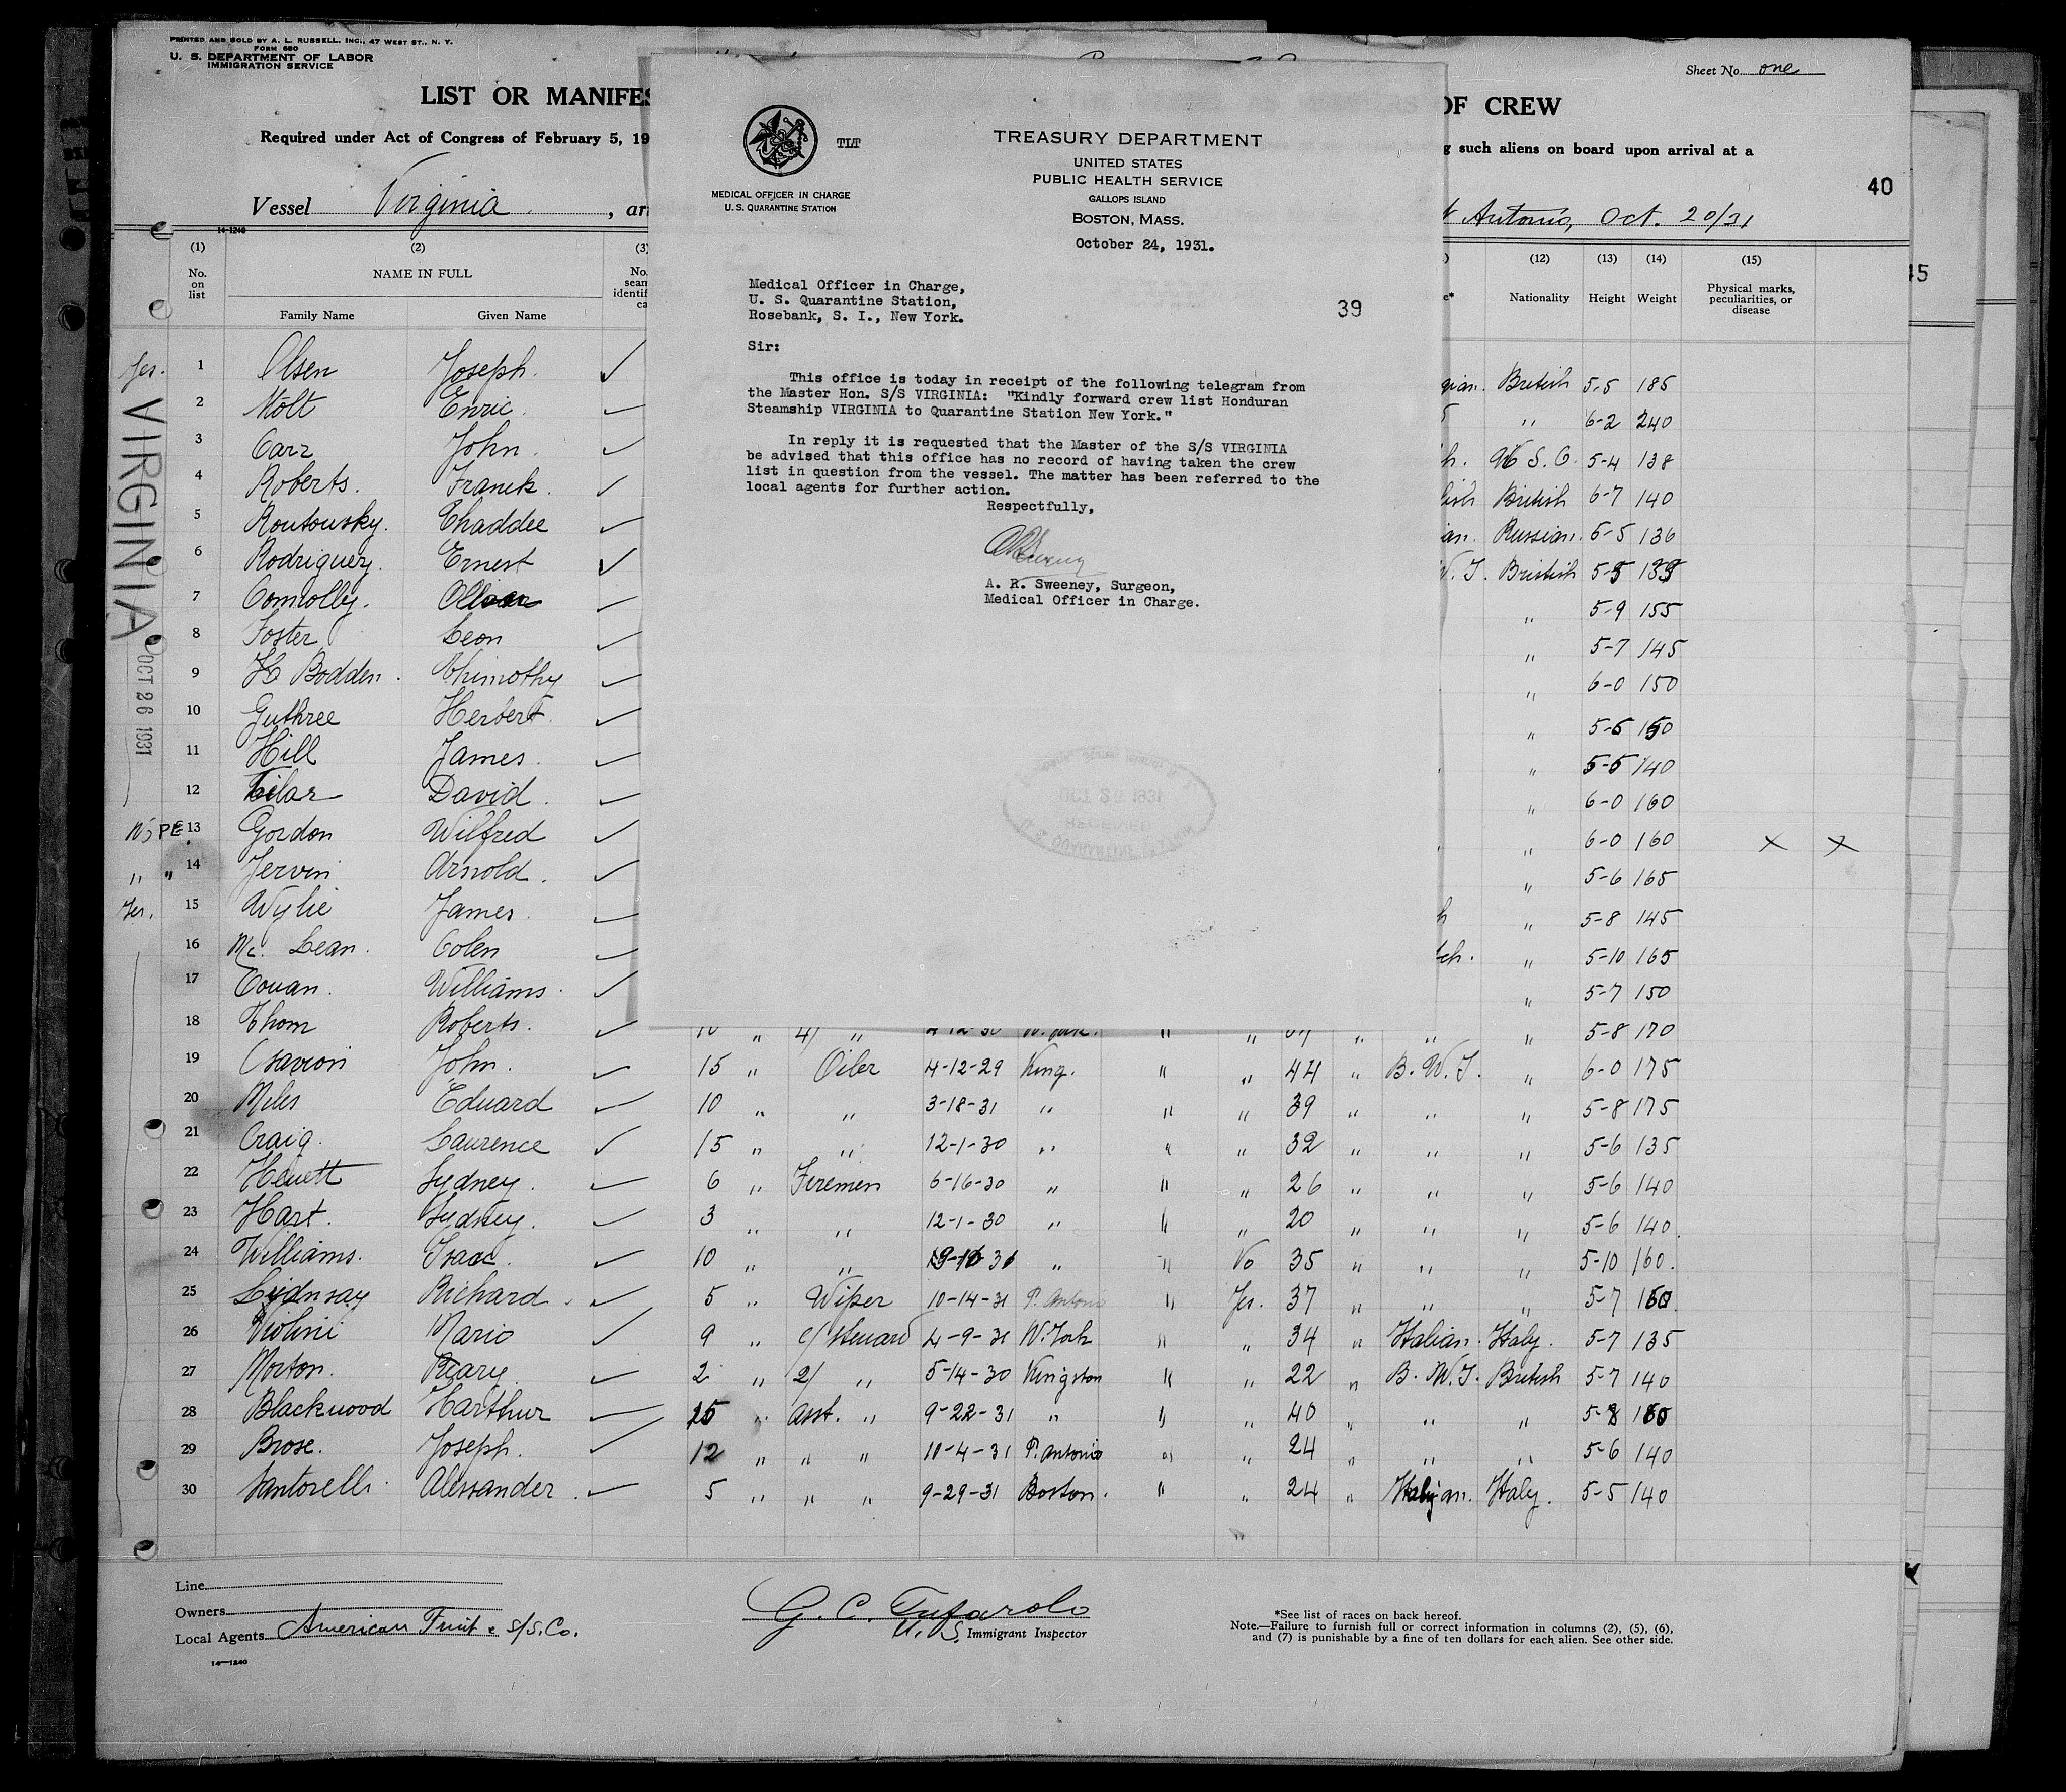 PRINTED AND SOLD BY A. L. RUSSELL, INC., 47 WEST ST., N. Y.
FORM 680
U. S. DEPARTMENT OF LABOR
IMMIGRATION SERVICE
Sheet No. one
LIST OR MANIFES
OF CREW
Required under Act of Congress of February 5, 19
g such aliens on board upon arrival at a
40
Vessel Virginia, arr
t Antonio, Oct. 20/31
14-1240
45
TLT
MEDICAL OFFICER IN CHARGE
U. S. QUARANTINE STATION
TREASURY DEPARTMENT
UNITED STATES
PUBLIC HEALTH SERVICE
GALLOPS ISLAND
BOSTON, MASS.
October 24, 1931.
Medical Officer in Charge,
U. S. Quarantine Station,
Rosebank, S. I., New York.
39
Sir:
This office is today in receipt of the following telegram from
the Master Hon. S/S VIRGINIA: "Kindly forward crew list Honduran
Steamship VIRGINIA to Quarantine Station New York."
In reply it is requested that the Master of the S/S VIRGINIA
be advised that this office has no record of having taken the crew
list in question from the vessel. The matter has been referred to the
local agents for further action.
Respectfully,
A. R. Sweeney, Surgeon,
Medical Officer in Charge.
RECEIVED
VIRGINIA
OCT 26 1931
(1) (2) (3) (12) (13) (14) (15)
No. on list
NAME IN FULL
Family Name Given Name
Nationality Height Weight Physical marks, peculiarities, or disease
Yes. 1 Olsen Joseph. British 5-5 185
2 Molt Enric. " 6-2 240
3 Carr John. U S. 5-4 138
4 Roberts. Franck. British 6-7 140
5 Routousky. Thaddee Russian. 5-5 136
6 Rodriguez. Ernest W. I. British 5-5
7 Connolly. " 5-9 155
8 Foster Leon " 5-7 145
9 H Bodden. Thimothy " 6-0 150
10 Guthree Herbert. " 5-6 150
11 Hill James. " 5-5 140
12 David. " 6-0 160
PE 13 Gordon Wilfred " 6-0 160 x x
" " 14 Jervin Arnold. " 5-6 165
Yes. 15 Wylie James. " 5-8 145
16 Mc. Lean. Colen " 5-10 165
17 Couan. Williams. " 5-7 150
18 Thom Roberts. " 5-8 170
19 John. 15 " Oiler 4-12-29 King. " " 44 " B. W. I. " 6-0 175
20 Miles Eduard 10 " " 3-18-31 " " " 39 " " " 5-8 175
21 Craig. Laurence 15 " " 12-1-30 " " " 32 " " " 5-6 135
22 Heuett Sydney. 6 " Firemen 6-16-30 " " " 26 " " " 5-6 140
23 Hart. Sydney. 3 " " 12-1-30 " " " 20 " " " 5-6 140.
24 Williams. Isaac. 10 " " " " No 35 " " " 5-10 160.
25 Lydnsay Richard. 5 " Wiper 10-14-31 P. Antonio " Yes. 37 " " " 5-7
26 Violini Mario 9 " c/ Steuard 4-9-31 N. York " " 34 " Italian. Italy. 5-7 135
27 Morton. Reary. 2 " 2/ " 5-14-30 Kingston " " 22 " B. W. I. British 5-7 140
28 Blackwood Harthur 15 " asst. " 9-22-31 " " " 40 " " " 5-8
29 Brose. Joseph. 12 " " " 10-4-31 P. Antonio " " 24 " " " 5-6 140
30 Santorelli Alessander 5 " " " 9-29-31 Boston. " " 24 " Italian. Italy. 5-5 140
Line
Owners
Local Agents American Fruit & S/S. Co.
14—1240
G. C. Tufarolo
U. S. Immigrant Inspector
*See list of races on back hereof.
Note.—Failure to furnish full or correct information in columns (2), (5), (6),
and (7) is punishable by a fine of ten dollars for each alien. See other side.